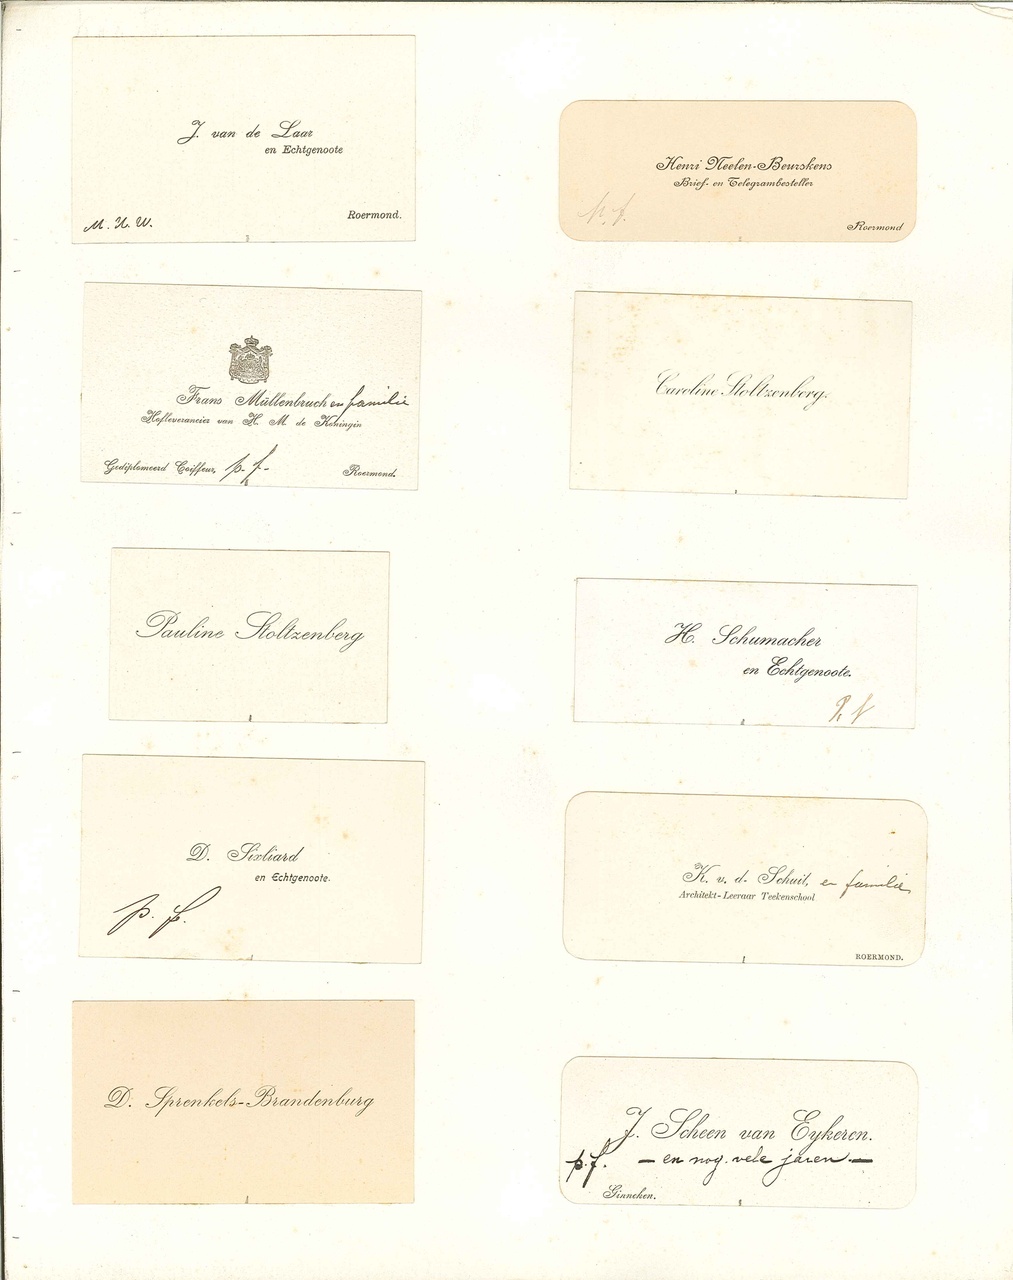 J. van de Laar
en Echtgenoote
M. N. W.
Roermond.
Henri Neelen-Beurskens
Brief- en Telegrambesteller
p. f.
Roermond
Frans Müllenbruch en familie
Hofleverancier van H. M de Koningin
Gediplomeerd Coiffeur, p. f.
Roermond.
Caroline Stoltzenberg.
Pauline Stoltzenberg
H. Schumacher
en Echtgenoote.
P. f
D. Sixliard
en Echtgenoote.
p. f.
K. v. d. Schuit, en familie
Architekt-Leeraar Teekenschool
ROERMOND.
D. Sprenkels-Brandenburg
J. Scheen van Eykeren.
p. f. — en nog vele jaren —
Ginneken.